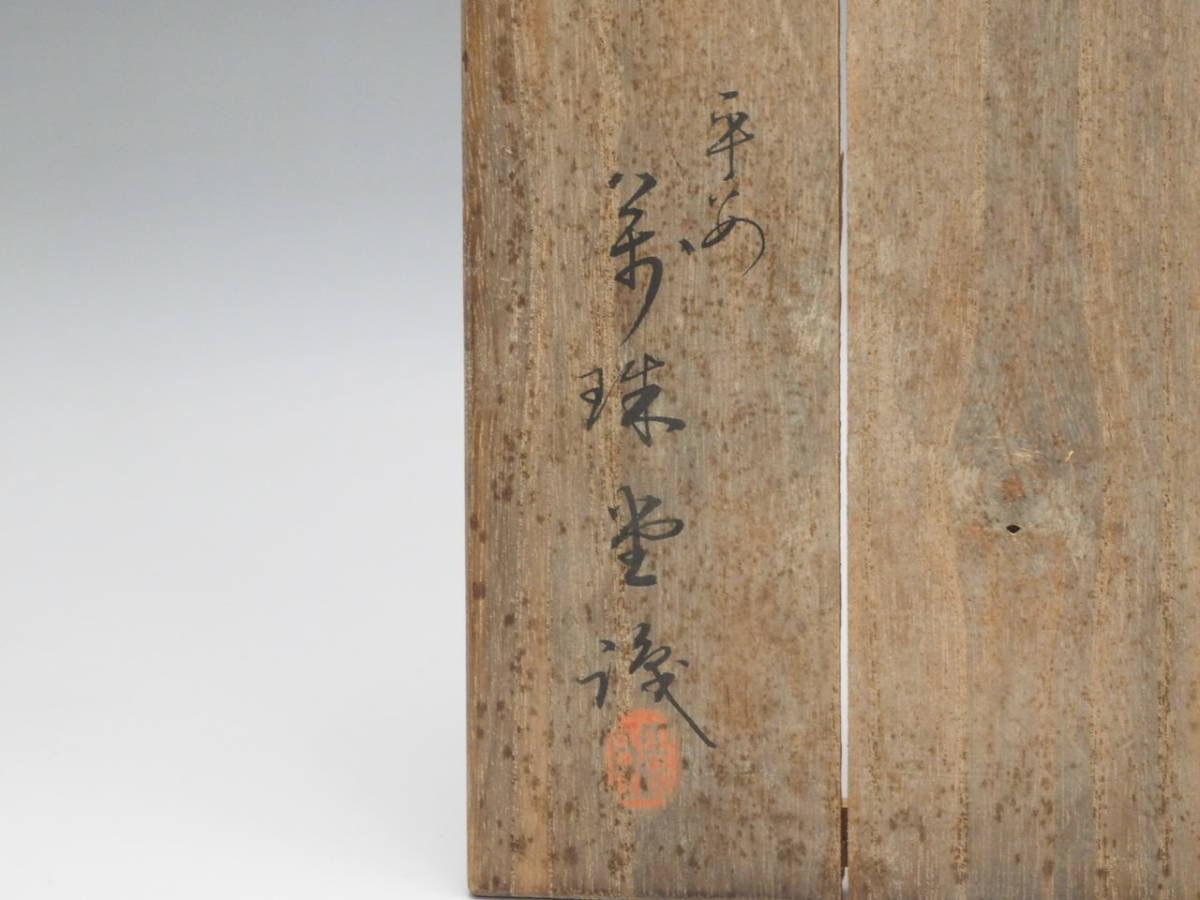 平安
萬珠堂識